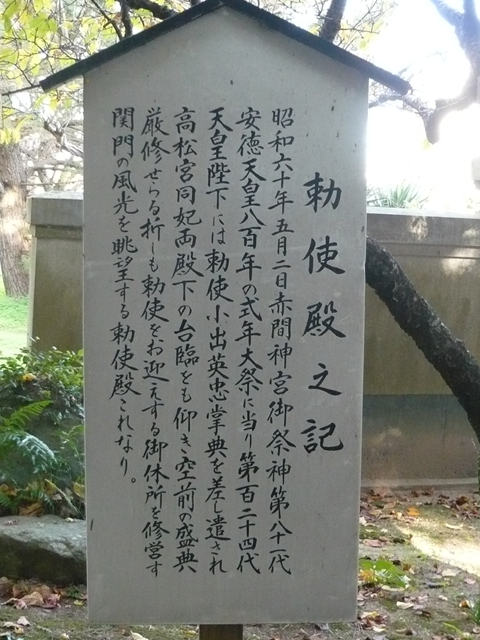 勅使殿之記
昭和六十年五月二日赤間神宮御祭神第八十一代
安徳天皇八百年の式年大祭に当り第百二十四代
天皇陛下には勅使小出英忠掌典を差し遣され
高松宮同妃両殿下の台臨をも仰き空前の盛典
厳修せらる折しも勅使をお迎えする御休所を修営す
関門の風光を眺望する勅使殿これなり。